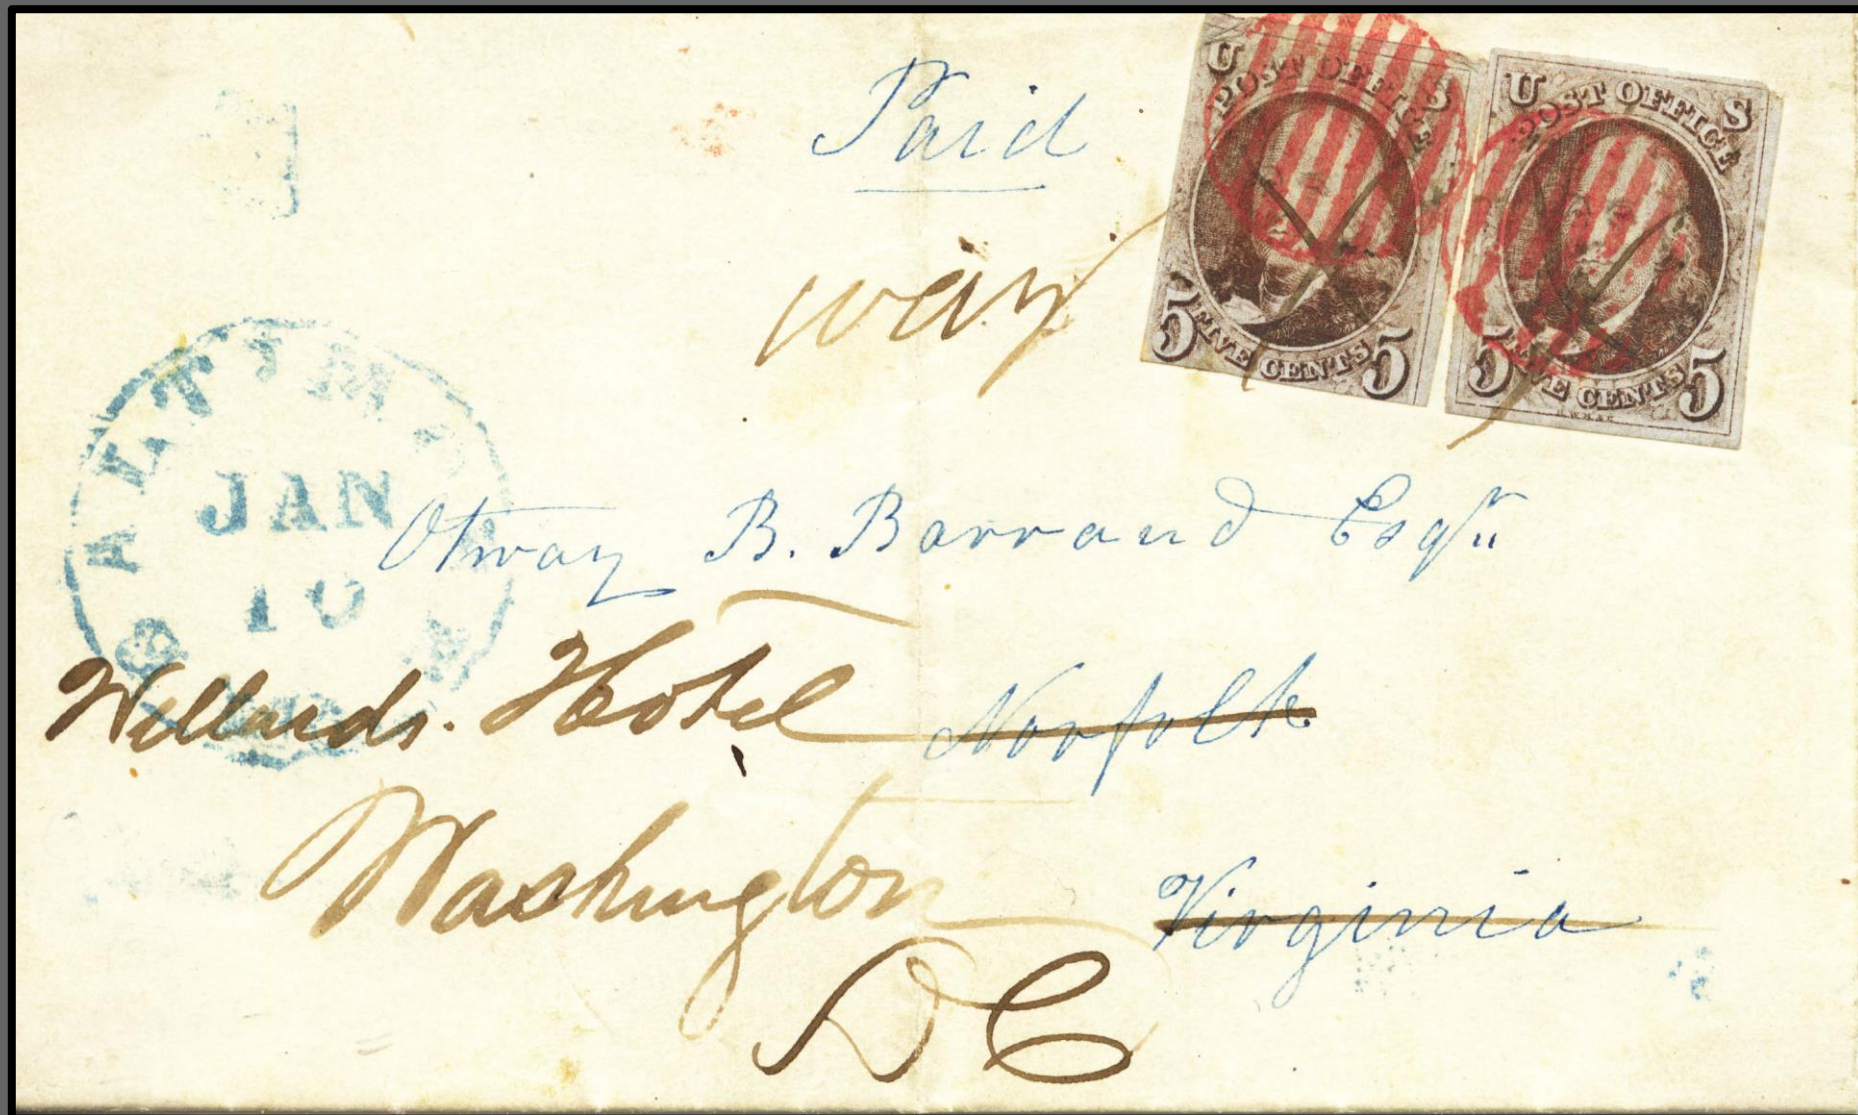 Paid
way
U S
POST OFFICE
5 FIVE CENTS 5
U S
POST OFFICE
5 FIVE CENTS 5
BALTIMO
JAN
10
Otway B. Barraud Esqr
Willards. Hotel Norfolk
Washington Virginia
DC